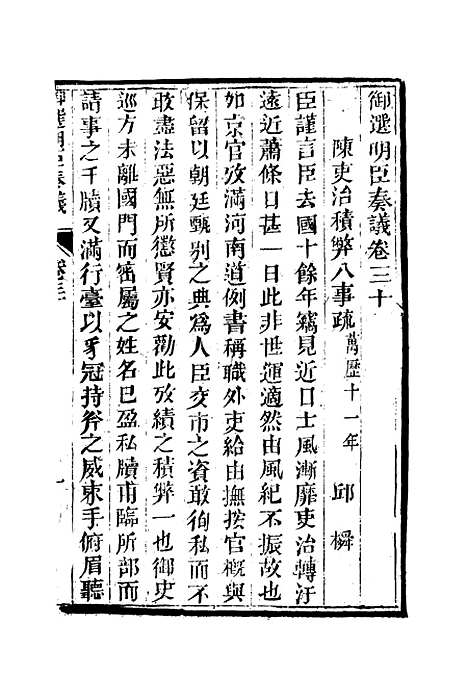 御選明臣奏議卷三十
陳吏治積弊八事疏 萬歷十一年 邱橓
臣謹言臣去國十餘年竊見近日士風漸靡吏治轉汙
遠近蕭條日甚此非世運適然由風紀不振故也
如京官攷滿河南道例書稱職外吏給由撫按官槪與
保留以朝廷甄别之典為人臣交市之資敢徇私而不
敢盡法惡無所懲賢亦安勸此攷績之積弊一也御史
巡方未離國門而密屬之姓名已盈私牘甫臨所部而
請事之干牘又滿行臺以豸冠持斧之威束手俯眉聽
御選明臣奏議 卷三十